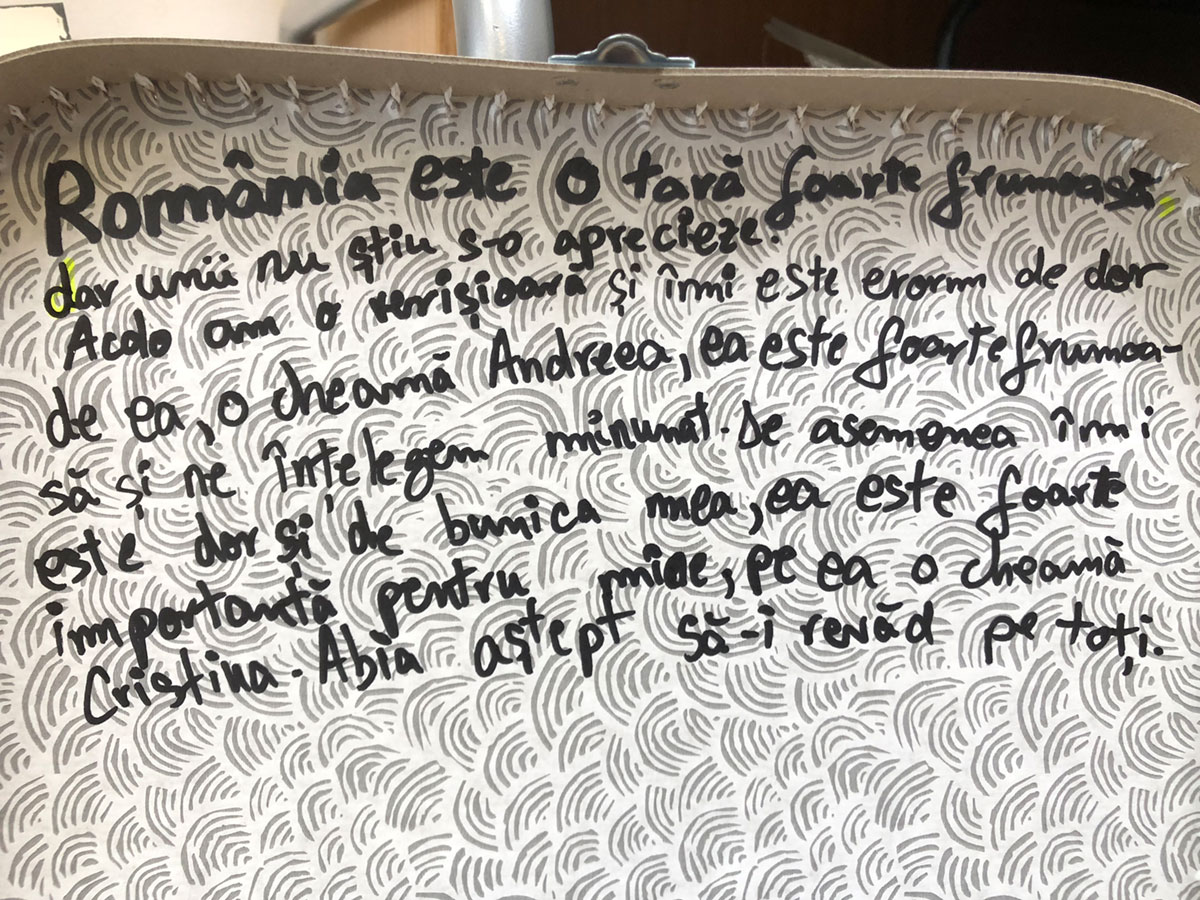 România este o tară foarte frumoasă,
dar unii nu știu s-o aprecieze.
Acolo am o verișioară și îmi este enorm de dor
de ea, o cheamă Andreea, ea este foarte frumoa-
să și ne înțelegem minunat. De asemenea îmi
este dor și de bunica mea, ea este foarte
importantă pentru mine, pe ea o cheamă
Cristina. Abia aștept să-i revăd pe toți.